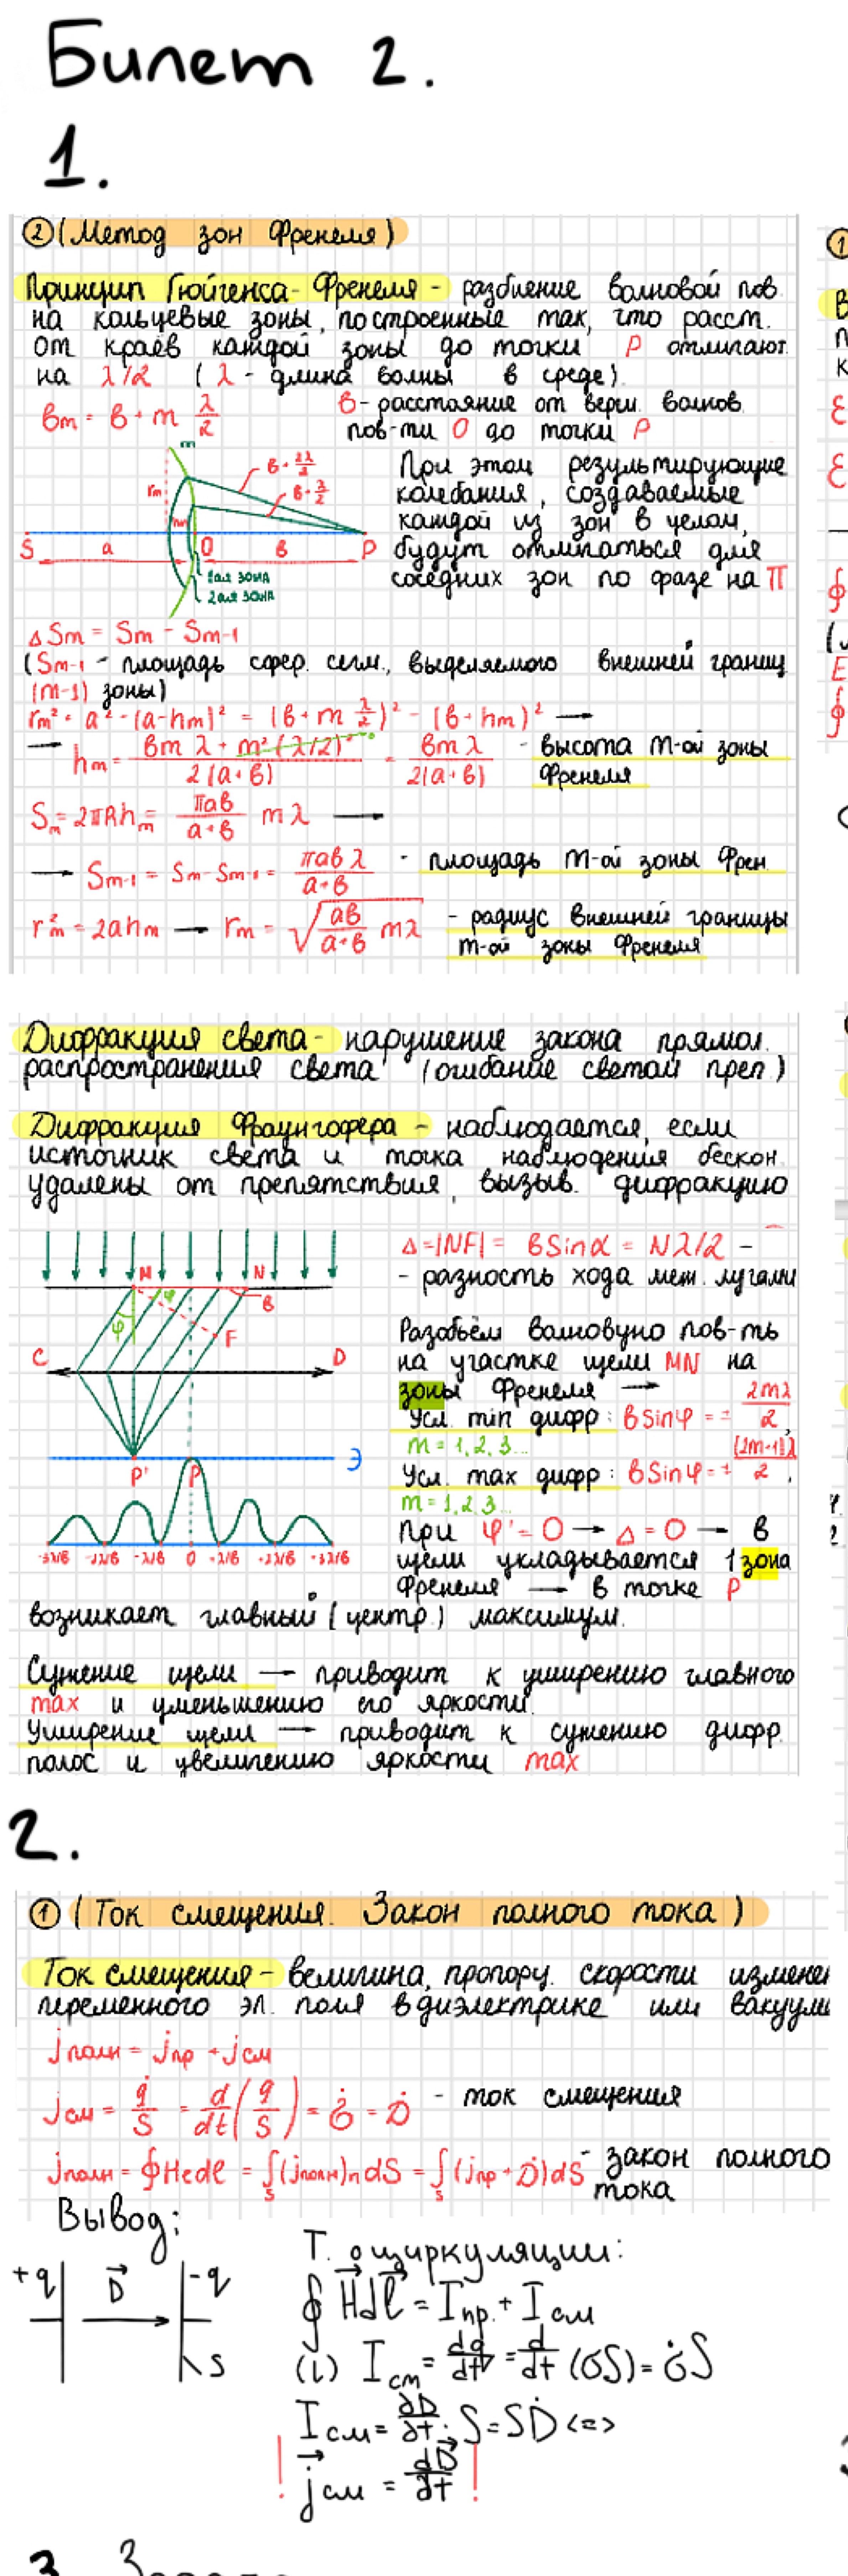 Билет 2.
1.
② (Метод зон Френеля)
Принцип Гюйгенса-Френеля - разбиение волновой пов.
на кольцевые зоны, построенные так, что расст.
от краёв каждой зоны до точки P отличают.
на λ/2 (λ - длина волны в среде).
bm = b + m λ/2
b - расстояние от верш. волнов.
пов-ти O до точки P
m
b + 2λ/2
b + λ/2
rm
hm
S a O b P
1ая зона
2ая зона
При этом результирующие
колебания, создаваемые
каждой из зон в целом,
будут отличаться для
соседних зон по фазе на π
ΔSm = Sm - Sm-1
(Sm-1 - площадь сфер. сегм., выделяемого внешней границ.
(m-1) зоны)
rm² = a² - (a-hm)² = (b + m λ/2)² - (b + hm)² →
→ hm = (bm λ + m²(λ/2)²)/(2(a+b)) = bmλ/(2(a+b)) - высота m-ой зоны
Френеля
Sm = 2πRhm = πab/(a+b) mλ →
→ Sm-1 = Sm - Sm-1 = πabλ/(a+b) - площадь m-ой зоны Френ.
rm² = 2ahm → rm = √(ab/(a+b) mλ) - радиус внешней границы
m-ой зоны Френеля
Дифракция света - нарушение закона прямол.
распространения света (огибание светом преп.)
Дифракция Фраунгофера - наблюдается, если
источник света и точка наблюдения бескон.
удалены от препятствия, вызыв. дифракцию
M N
φ φ B
F
C D
Э
P' P
-3λ/b -2λ/b -λ/b 0 +λ/b +2λ/b +3λ/b
Δ=|NF| = bSinα = Nλ/2 -
- разность хода меж. лучами
Разобьём волновую пов-ть
на участке щели MN на
зоны Френеля →
Усл. min дифр: bSinφ = ± 2mλ/2,
m = 1,2,3...
Усл. max дифр: bSinφ = ± (2m+1)λ/2,
m = 1,2,3...
При φ' = 0 → Δ = 0 → в
щели укладывается 1 зона
Френеля → в точке P
возникает главный (центр.) максимум.
Сужение щели → приводит к уширению главного
max и уменьшению его яркости.
Уширение щели → приводит к сужению дифр.
полос и увеличению яркости max
2.
① (Ток смещения. Закон полного тока)
Ток смещения - величина, пропорц. скорости изменен
переменного эл. поля в диэлектрике или вакууме
jполн = jпр + jсм
jсм = q̇/S = d/dt (q/S) = σ̇ = Ḋ - ток смещения
jполн = ∮Hedl = ∫s (jполн)n dS = ∫s (jпр + Ḋ)dS - закон полного
тока
Вывод:
+q D⃗ -q
S
Т. о циркуляции:
∮ H⃗dl⃗ = Iпр. + Iсм
(L) Iсм = dq/dt = d/dt (σS) = σ̇S
Iсм = ∂D/∂t · S = SḊ <=>
! j⃗см = dD⃗/dt !